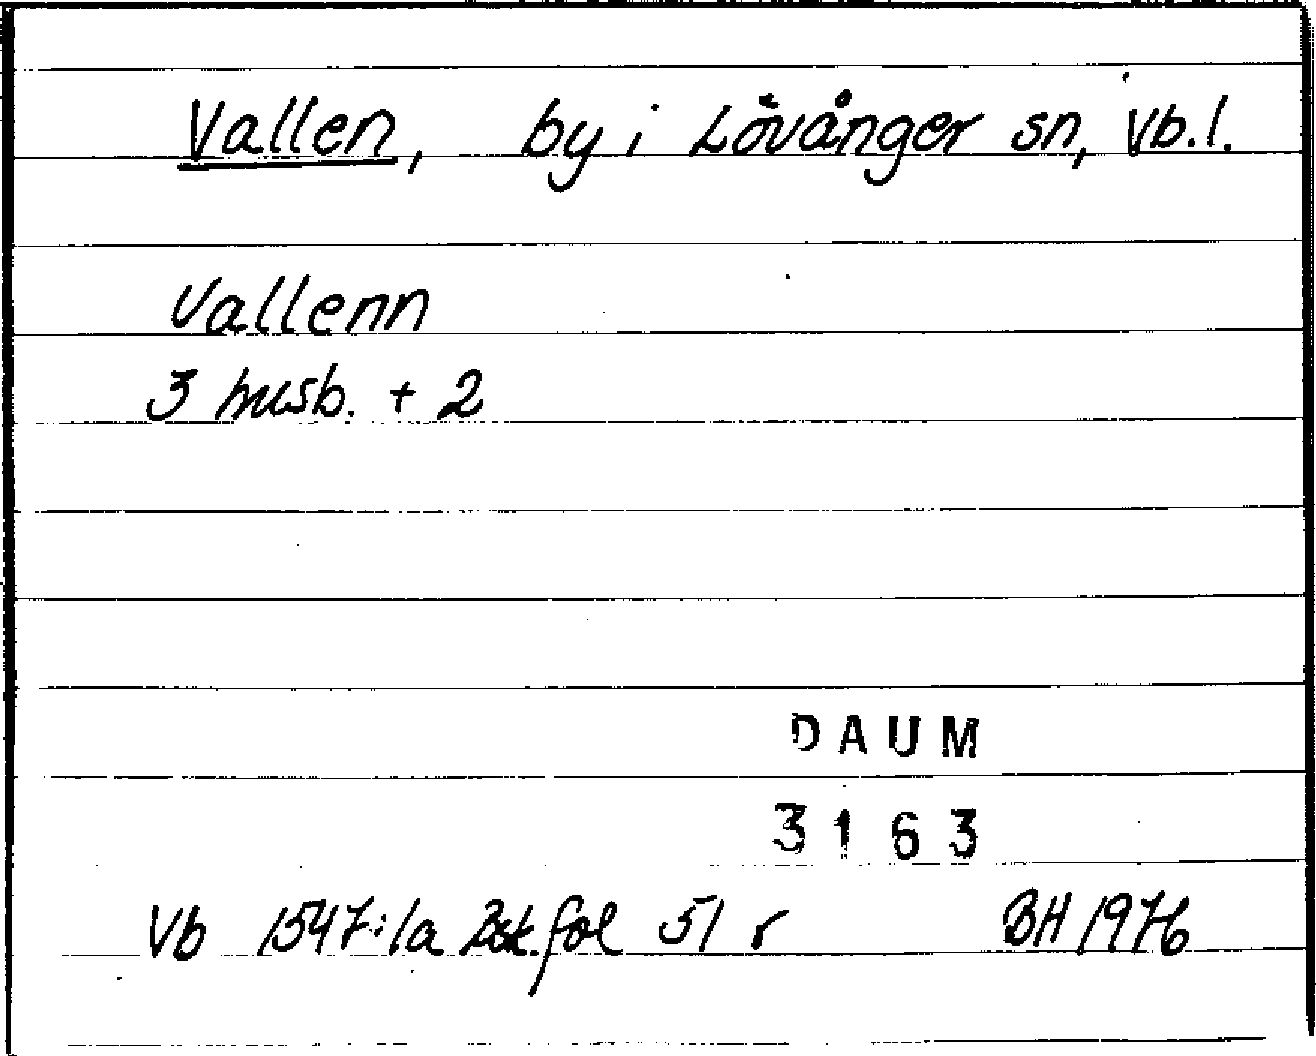 Vallen, by i Lövånger sn, Vb.l.
Vallenn
3 husb. + 2
DAUM
3163
Vb 1547:1a Bsk fol 51 r BH 1976